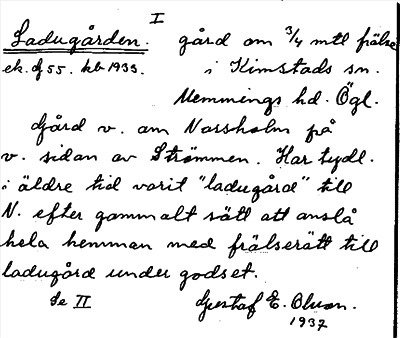 I
Ladugården. gård om 3/4 mtl frälse
ek. df 55. kb 1933. i Kimstads sn.
Memmings hd. Ögl.
Gård v. om Norsholm på
v. sidan av Strömmen. Har tydl.
i äldre tid varit "ladugård" till
N. efter gammalt sätt att anslå
hela hemman med frälserätt till
ladugård under godset.
Se II Gustaf E. Olson.
1937